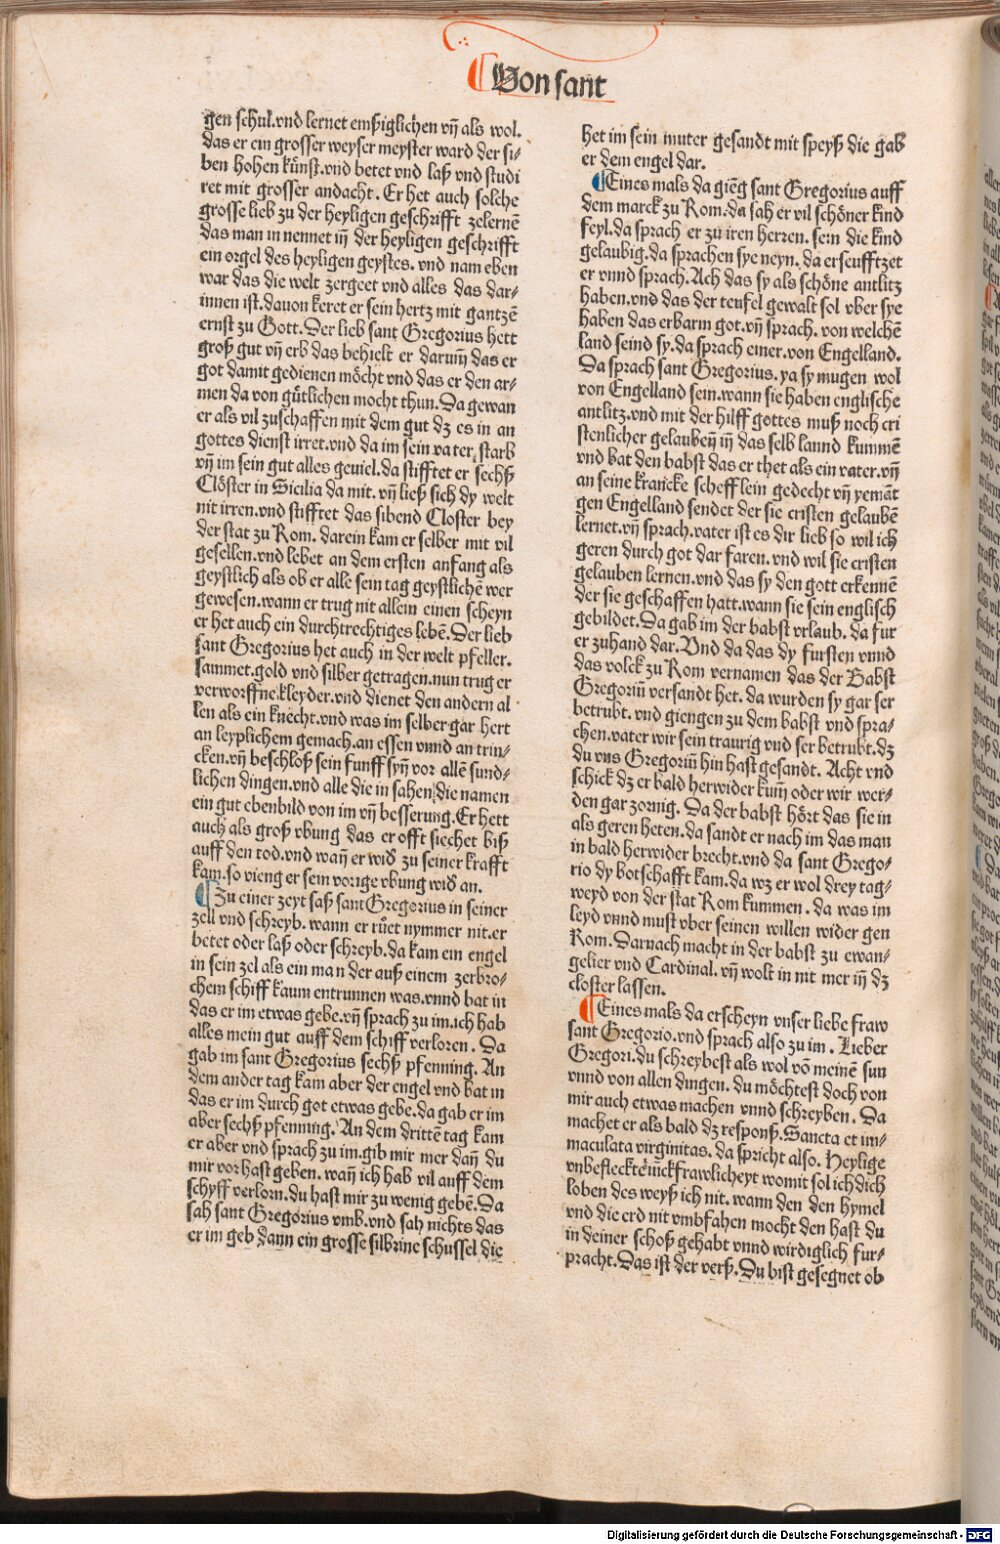 Von sant
gen schul.vnd lernet emßiglichen vn̄ als wol.
das er ein grosser weyser meyster ward der si-
ben hohen künst.vnd betet vnd laß vnd studi
ret mit grosser andacht. Er het auch solche
grosse lieb zu der heyligen geschrifft zelernē
das man in nennet in̄ der heyligen geschrifft
ein orgel des heyligen geystes. vnd nam eben
war das die welt zergeet vnd alles das dar-
innen ist.dauon keret er sein hertz mit gantzē
ernst zu Gott. Der lieb sant Gregorius hett
groß gut vn̄ erb das behielt er darum̄ das er
got damit gedienen möcht vnd das er den ar-
men da von gütlichen mocht thun. Da gewan
er als vil zuschaffen mit dem gut dz es in an
gottes dienst irret.vnd da im sein vater starb
vn̄ im sein gut alles geuiel.da stifftet er sechß
Clöster in Sicilia da mit. vn̄ ließ sich dy welt
nit irren.vnd stifftet das sibend Closter bey
der stat zu Rom. darein kam er selber mit vil
gesellen.vnd lebet an dem ersten anfang als
geystlich als ob er alle sein tag geystlichē wer
gewesen.wann er trug nit allein einen scheyn
er het auch ein durchtrechtiges lebē. Der lieb
sant Gregorius het auch in der welt pfeller.
sammet.gold vnd silber getragen.nun trug er
verworffne kleyder.vnd dienet den andern al
len als ein knecht.vnd was im selber gar hert
an leyplichem gemach.an essen vnnd an trin-
cken.vn̄ beschloß sein funff syn̄ vor allē sund-
lichen dingen.vnd alle die in sahen die namen
ein gut ebenbild von im vn̄ besserung. Er hett
auch als groß vbung das er offt siechet biß
auff den tod.vnd wan̄ er wid zu seiner krafft
kam.so vieng er sein vorige vbung wid an.
Zu einer zeyt saß sant Gregorius in seiner
zell vnd schreyb. wann er rüet nymmer nit.er
betet oder laß oder schreyb.da kam ein engel
in sein zel als ein man der auß einem zerbro-
chem schiff kaum entrunnen was.vnnd bat in
das er im etwas gebe.vn̄ sprach zu im.ich hab
alles mein gut auff dem schiff verloren. Da
gab im sant Gregorius sechß pfenning. An
dem ander tag kam aber der engel vnd bat in
das er im durch got etwas gebe.da gab er im
aber sechß pfenning. An dem drittē tag kam
er aber vnd sprach zu im.gib mir mer dan̄ du
mir vor hast geben. wan̄ ich hab vil auff dem
schyff verlorn.du hast mir zu wenig gebē. Da
sah sant Gregorius vmb.vnd sah nichts das
er im geb dann ein grosse silbrine schussel die
het im sein muter gesandt mit speyß die gab
er dem engel dar.
Eines mals da gieng sant Gregorius auff
dem marck zu Rom.da sah er vil schöner kind
feyl.da sprach er zu iren herren. sein die kind
gelaubig.da sprachen sye neyn. da erseufftzet
er vnnd sprach. Ach das sy als schöne antlitz
haben.vnd das der teufel gewalt sol vber sye
haben das erbarm got.vn̄ sprach. von welchē
land seind sy.da sprach einer.von Engelland.
Da sprach sant Gregorius. ya sy mugen wol
von Engelland sein.wann sie haben englische
antlitz.vnd mit der hilff gottes muß noch cri
stenlicher gelauben̄ in̄ das selb lannd kummē
vnd bat den babst das er thet als ein vater.vn̄
an seine krancke schefflein gedecht vn̄ yemāt
gen Engelland sendet der sie cristen gelaubē
lernet.vn̄ sprach.vater ist es dir lieb so wil ich
geren durch got dar faren. vnd wil sie cristen
gelauben lernen.vnd das sy den gott erkennē
der sie geschaffen hatt.wann sie sein englisch
gebildet. Da gab im der babst vrlaub. da fur
er zuhand dar. Vnd da das dy fursten vnnd
das volck zu Rom vernamen das der Babst
Gregoriū versandt het. da wurden sy gar ser
betrubt. vnd giengen zu dem babst vnd spra-
chen.vater wir sein traurig vnd ser betrubt.dz
du vns Gregoriū hin hast gesandt. Acht vnd
schick dz er bald herwider kum̄ oder wir wer-
den gar zornig. Da der babst hört das sie in
als geren heten.da sandt er nach im das man
in bald herwider brecht.vnd da sant Grego-
rio dy botschafft kam.da wz er wol drey tag-
weyd von der stat Rom kummen. da was im
leyd vnnd must vber seinen willen wider gen
Rom. Darnach macht in der babst zu ewan-
gelier vnd Cardinal. vn̄ wolt in nit mer in̄ dz
closter lassen.
Eines mals da erscheyn vnser liebe fraw
sant Gregorio.vnd sprach also zu im. Lieber
Gregori.du schreybest als wol vō meinē sun
vnnd von allen dingen. du möchtest doch von
mir auch etwas machen vnnd schreyben. Da
machet er als bald dz responß. Sancta et im-
maculata virginitas. da spricht also. Heylige
vnbefleckte iūckfrawlicheyt womit sol ich dich
loben des weyß ich nit. wann den den hymel
vnd die erd nit vmbfahen mocht den hast du
in deiner schoß gehabt vnnd wirdiglich fur-
pracht. Das ist der verß. Du bist gesegnet ob
Digitalisierung gefördert durch die Deutsche Forschungsgemeinschaft - DFG